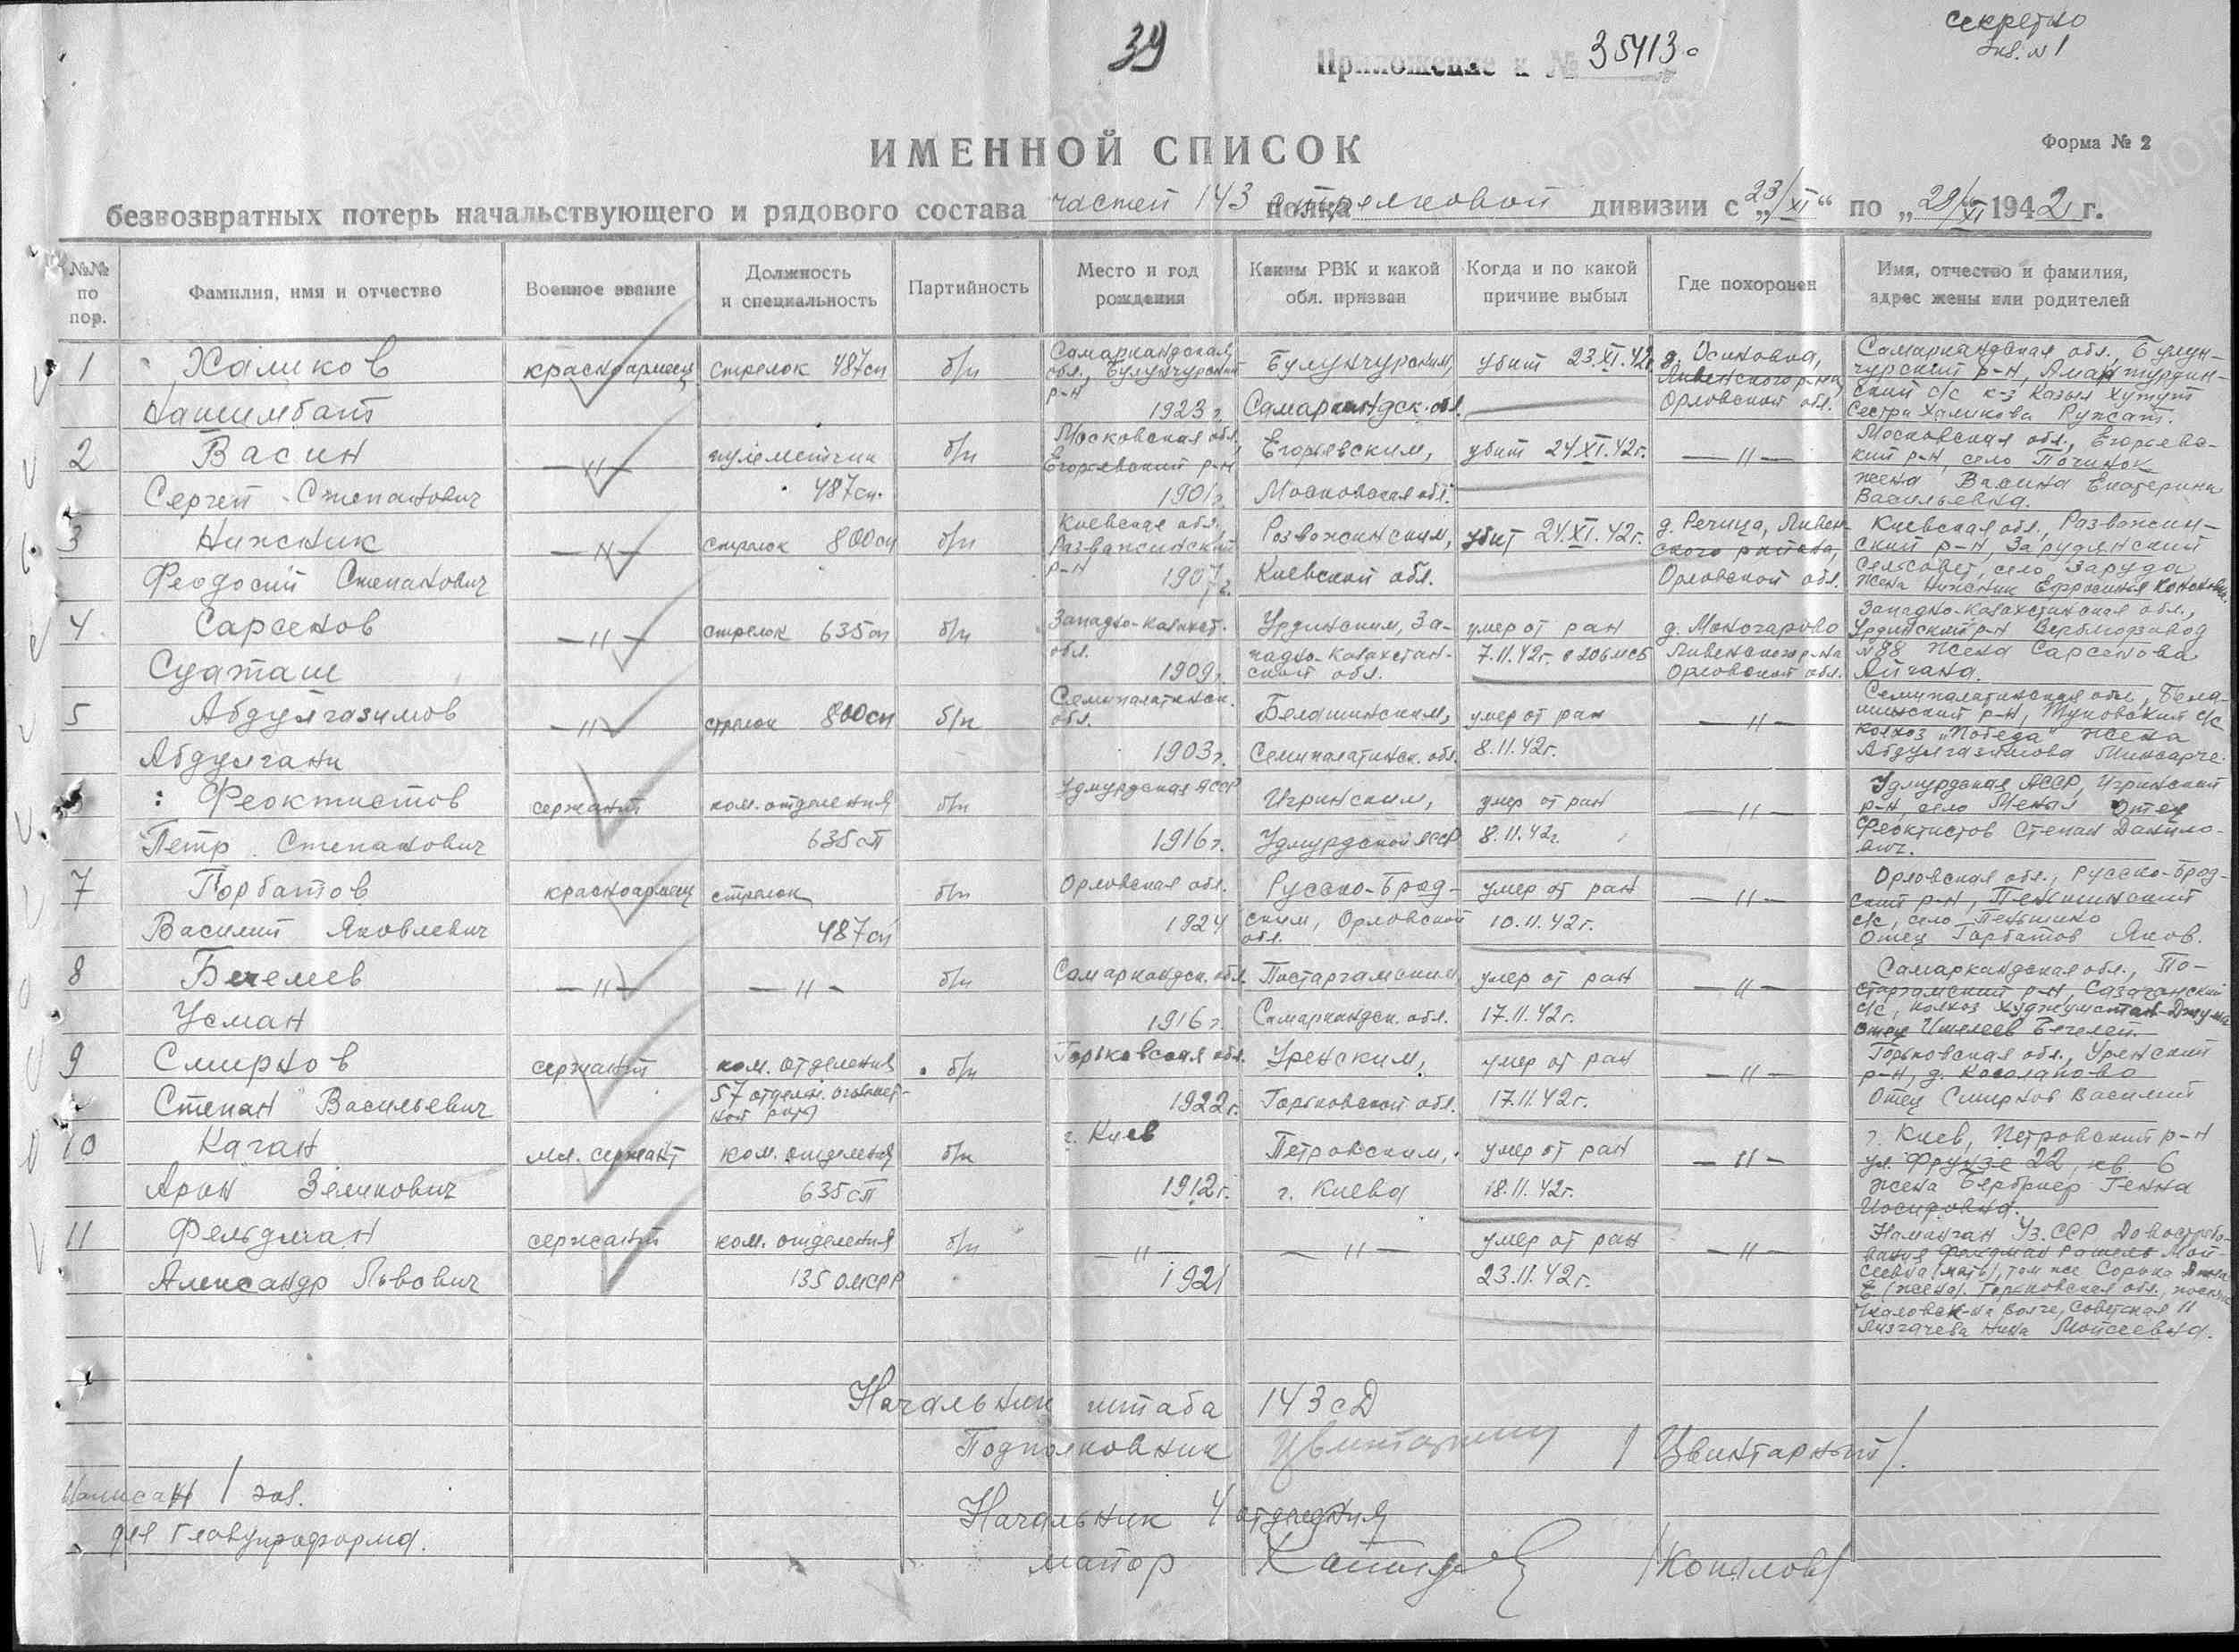 секретно
экз. № 1
39
Приложение к № 35413с
ИМЕННОЙ СПИСОК
Форма № 2
безвозвратных потерь начальствующего и рядового состава частей 143 полка стрелковой дивизии с „23/XI“ по „29/XI 1942 г.
№№ по пор.
Фамилия, имя и отчество
Военное звание
Должность и специальность
Партийность
Место и год рождения
Каким РВК и какой обл. призван
Когда и по какой причине выбыл
Где похоронен
Имя, отчество и фамилия, адрес жены или родителей
1
Халиков
красноармеец
стрелок 487сп
б/п
Самаркандская обл., Булунгурский р-н
1923 г.
Булунгурским,
Самаркандск. обл.
убит 23.XI.42г.
д. Осиновка,
Ливенского р-на,
Орловской обл.
Самаркандская обл., Булун-
гурский р-н,
Сестра Халикова
2
Васин
Сергей Степанович
—„—
пулеметчик
487сп.
б/п
Московская обл,
Егорьевский р-н
1901г.
Егорьевским,
Московской обл.
убит 24.XI.42г.
—„—
Московская обл., Егорьевс-
кий р-н, село Починок
жена Васина Екатерина
Васильевна.
3
Нижник
Феодосий Степанович
—„—
стрелок 800сп
б/п
Киевская обл.,
Розважинский
р-н
1907г.
Розважинским,
Киевской обл.
убит 24.XI.42г.
д. Речица, Ливен-
ского района,
Орловской обл.
Киевская обл., Розважин-
ский р-н, Зарудянский
сельсовет, село Заруда
жена Нижник Ефросинья
4
Сарсенов
—„—
стрелок 635сп
б/п
Западно-Казахст.
обл.
1909г.
Урдинским, За-
падно-Казахстан-
ской обл.
умер от ран
7.11.42г. в 206 мсб
д. Мокчарово
Ливенского р-на
Орловской обл.
Западно-Казахстанская обл.,
Урдинский р-н Верблюдзавод
№88 жена Сарсенова
5
Абдулгазимов
Абдулгани
—„—
стрелок 800сп
б/п
Семипалатинск.
обл.
1903г.
Семипалатинск. обл.
умер от ран
8.11.42г.
—„—
Семипалатинская обл.,
колхоз „Победа“ жена
Абдулгазимова
6
Феоктистов
Петр Степанович
сержант
ком. отделения
635сп
б/п
Удмурдская АССР
1916г.
Игринским,
Удмурдской АССР
умер от ран
8.11.42г.
—„—
Удмурдская АССР, Игринский
р-н, село Менил отец
Феоктистов Степан Данило-
вич.
7
Горбатов
Василий Яковлевич
красноармеец
стрелок
487сп
б/п
Орловская обл.
1924
Русско-Брод-
ским, Орловской
обл.
умер от ран
10.11.42г.
—„—
Орловская обл., Русско-Брод-
ский р-н, Пеньшинский
с/с, село Пеньшино
Отец Горбатов Яков.
8
Бегелев
Усман
—„—
—„—
б/п
Самаркандск. обл.
1916г.
Постаргамским,
Самаркандск. обл.
умер от ран
17.11.42г.
—„—
Самаркандская обл., По-
старгамский р-н, Сазаганский
с/с, колхоз
отец
9
Смирнов
Степан Васильевич
сержант
ком. отделения
57 отдельн.
б/п
Горьковская обл.
1922г.
Уренским,
Горьковской обл.
умер от ран
17.11.42г.
—„—
Горьковская обл., Уренский
р-н, д. Косолапово
Отец Смирнов Василий
10
Каган
Арон Зеликович
мл. сержант
ком. отделения
635сп
б/п
г. Киев
1912г.
Петровским,
г. Киева
умер от ран
18.11.42г.
—„—
г. Киев, Петровский р-н
ул. Фрунзе 22, кв. 6
жена Гербриер Генна
Иосифовна.
11
Фельдман
Александр Львович
сержант
ком. отделения
135 омср
б/п
—„—
1921
—„—
умер от ран
23.11.42г.
—„—
Наманган Уз.ССР Довостребо-
вания Фельдман Рашель Мои-
сеевна (мать), там же Сорока
(жена). Горьковская обл.,
на Волге, Советская 11
Нина Моисеевна.
Начальник штаба 143сд
Подполковник / Цвинтарный /.
Начальник 4 отделения
майор /Копылов/
Написан 1 экз.
для Главупраформа.